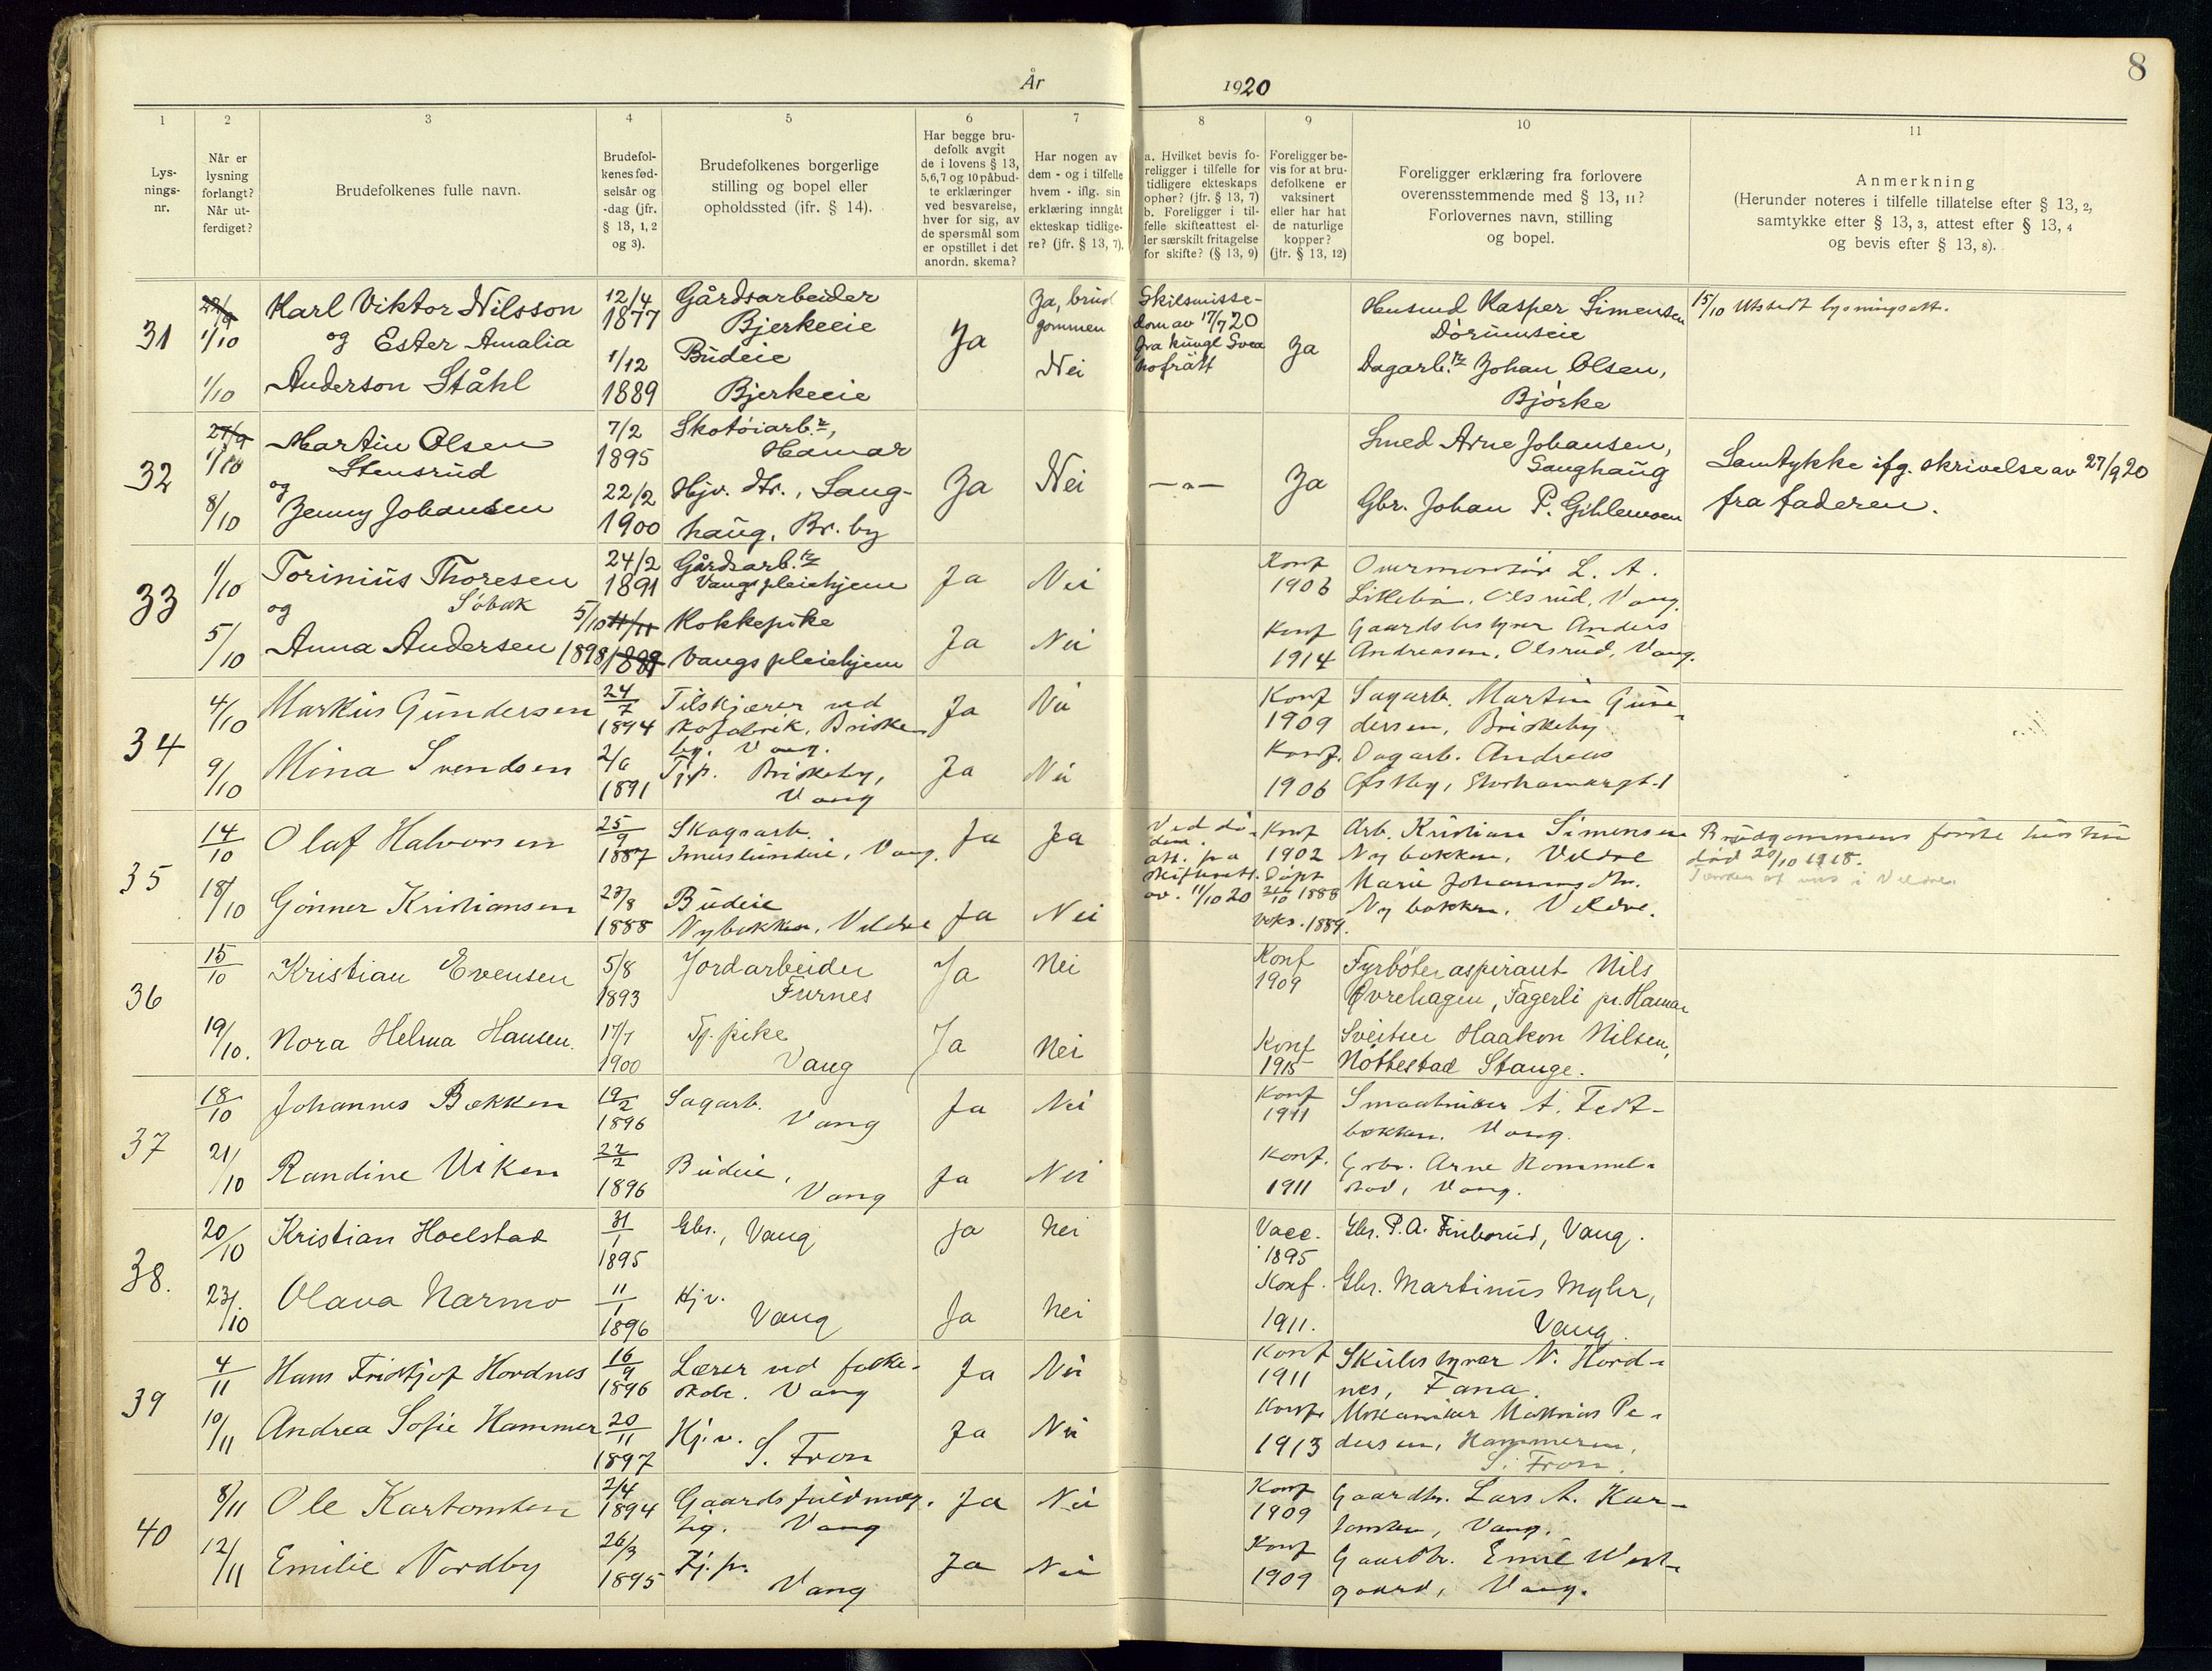 8
År 1920
1 2 3 4 5 6 7 8 9 10 11
Lysningsnr.
Når er lysning forlangt? Når utferdiget?
Brudefolkenes fulle navn.
Brudefolkenes fødselsår og -dag (jfr. § 13, 1, 2 og 3).
Brudefolkenes borgerlige stilling og bopel eller opholdssted (ifr. § 14).
Har begge brudefolk avgit de i lovens § 13, 5, 6, 7 og 10 påbudte erklæringer ved besvarelse, hver for sig, av de spørsmål som er opstillet i det anordn. skema?
Har nogen av dem - og i tilfelle hvem - iflg. sin erklæring inngåt ekteskap tidligere? (jfr. § 13, 7).
a. Hvilket bevis foreligger i tilfelle for tidligere ekteskaps ophør? (jfr. § 13, 7)
b. Foreligger i tilfelle skifteattest eller særskilt fritagelse for skifte? (§ 13, 9)
Foreligger bevis for at brudefolkene er vaksinert eller har hat de naturlige kopper? (jfr. § 13, 12)
Foreligger erklæring fra forlovere overensstemmende med § 13, 11? Forlovernes navn, stilling og bopel.
Anmerkning
(Herunder noteres i tilfelle tillatelse efter § 13, 2, samtykke efter § 13, 3, attest efter § 13, 4 og bevis efter § 13, 8).
31
22/9 1/10 Karl Viktor Nilsson 12/4 1877 Gårdsarbeider Bjerkeeie
og Ester Amalia
1/10 Anderson Ståhl 1/12 1889 Budeie Bjerkeeie
Ja
Ja, brudgommen
Nei
Skilsmissedom av 17/7 20 fra kungl Svea hofrätt
Ja
Husmd Kasper Simensen
Dørumseie
Dagarb.r Johan Olsen,
Bjørke
15/10 Utstedt lysningsatt.
32
27/9 1/10 Martin Olsen Stensrud 7/2 1895 Skotøiarb.r, Hamar
og
8/10 Jenny Johansen 22/2 1900 Hjv. dtr., Saughaug, Br. by
Ja Nei — " — Ja
Smed Arne Johansen,
Saughaug
Gbr. Johan P. Gihlemoen
Samtykke ifg. skrivelse av 27/9 20
fra faderen.
33
1/10 Torinius Thoresen Søbak 24/2 1891 Gårdsarb.r Vangs pleiehjem Ja Nei Konf 1906
Overmontør L. A.
Olsrud, Vang.
og
5/10 Anna Andersen 5/10 1898 11/11 1889 Kokkepike Vangs pleiehjem Ja Nei Konf 1914
Gaardsbestyrer Anders
Andreasen, Olsrud, Vang.
34
4/10 Markus Gundersen 24/7 1894 Tilskjærer ved skofabrik, Briskeby, Vang. Ja Nei Konf 1909
Sagarb. Martin Gundersen, Briskeby
9/10 Mina Svendsen 1891 Tj.p. Briskeby, Vang Ja Nei Konf. 1906
Dagarb. Andreas
Østby, Storhamargt. 1
35
14/10 Olaf Halvorsen 25/9 1887 Skogsarb. Vang. Ja Ja
att. fra skifterett. av. 11/10 20
Konf 1902
Arb. Kristian Simensen
Nybakken, Veldre
Brudgommens første hustru
død 20/10 1918.
18/10 Gunner Kristiansen 23/8 1888 Budeie Nybakken, Veldre Ja Nei
Døpt 21/10 1888
vaks. 1889.
Marie Johannesdtr.
Nybakken, Veldre.
36
15/10 Kristian Evensen 5/8 1893 Jordarbeider Furnes Ja Nei Konf 1909
Fyrbøteraspirant Nils
Øvrehagen, Fagerli pr. Hamar
19/10. Nora Helma Hansen. 17/7 1900 Tj. pike Vang Ja Nei Konf 1915
Sveitser Haakon Nilsen,
Nøttestad Stange.
37
18/10 Johannes Bekken 19/2 1896 Sagarb. Vang Ja Nei Konf 1911
Smaabruker A. Fedtbekken. Vang.
21/10 Randine Viken 22/2 1896 Budeie, Vang Ja Nei Konf. 1911
Grbr. Arne Hommelstad, Vang.
38.
20/10 Kristian Hoelstad 31/1 1895 Gbr., Vang Ja Nei Vacc. 1895
Gbr. P. A. Finborud, Vang.
23/10 Olava Narmo 11/1 1896 Hjv. Vang Ja Nei Konf. 1911.
Gbr. Martinus Myhr,
Vang.
39
4/11 Hans Fridtjof Hordnes 16/9 1896 Lærer ved folkeskole. Vang Ja Nei Konf 1911
Skulestyrar N. Hordnes, Fana.
10/11 Andrea Sofie Hammer 20/11 1897 Hj.v. S. Fron Ja Nei Konf. 1913
Mekaniker Mathias Pedersen, Hammeren,
S. Fron.
40
8/11 Ole Kartomten 2/4 1894 Gaardsfuldmægtig. Vang Ja Nei Konf 1909
Gaardbr. Lars A. Kartomten, Vang.
12/11 Emilie Nordby 26/3 1895 Tj.p. Vang Ja Nei Konf 1909
Gaardbr. Emil Westgaard, Vang.